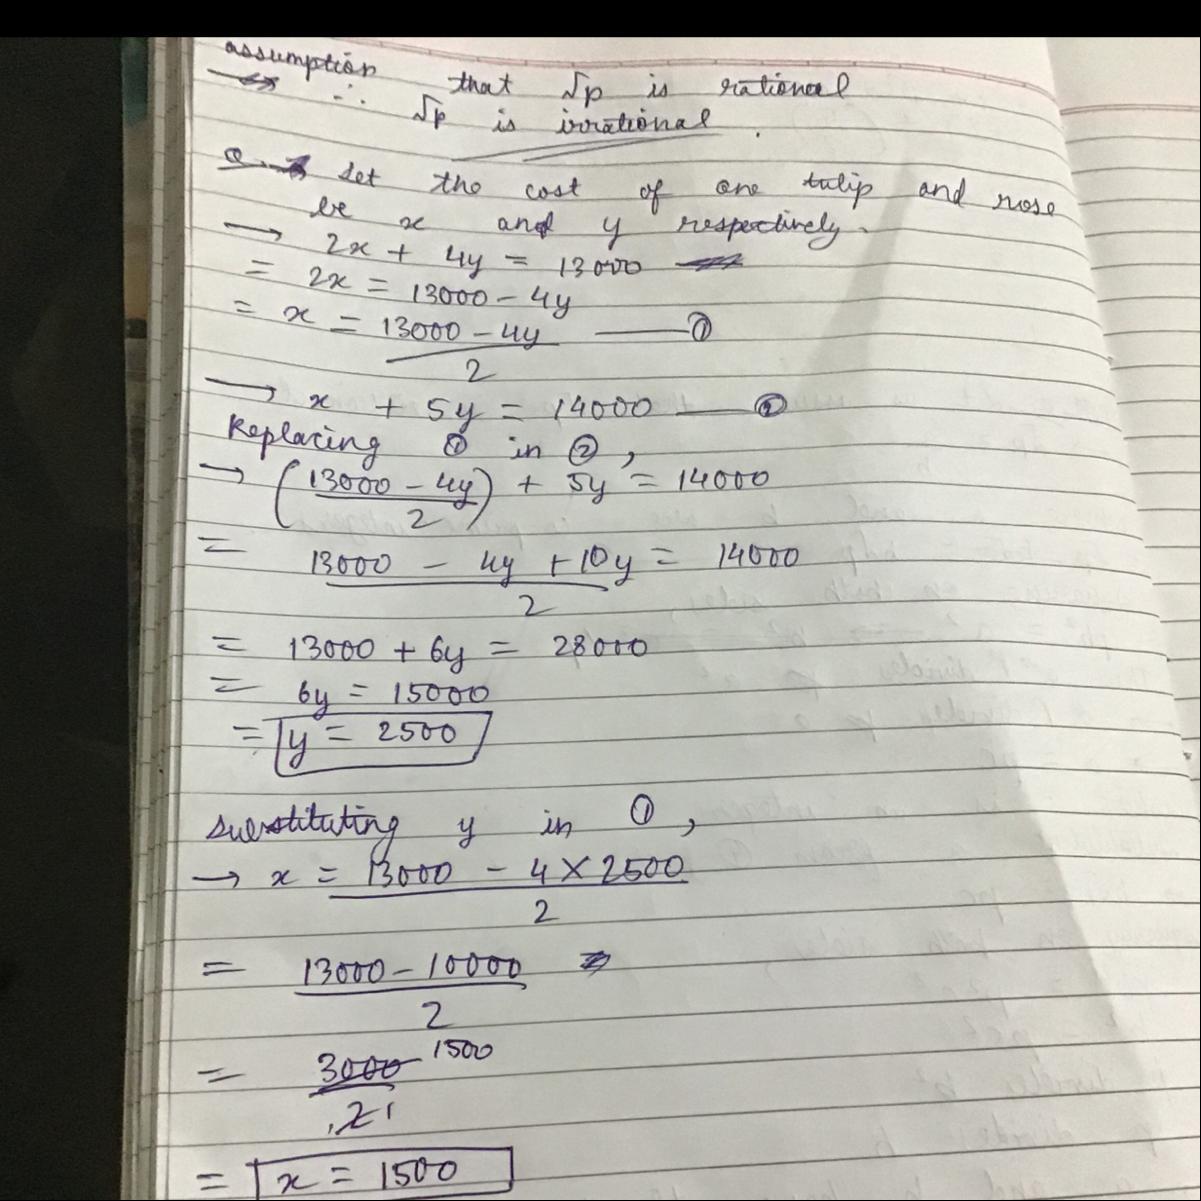 assumption that √p is rational
∴ √p is irrational.
Q. Let the cost of one tulip and rose
be x and y respectively.
→ 2x + 4y = 13000
= 2x = 13000 - 4y
= x = 13000 - 4y ——— ①
2
→ x + 5y = 14000 —— ②
Replacing ① in ②,
→ (13000 - 4y) + 5y = 14000
2
= 13000 - 4y + 10y = 14000
2
= 13000 + 6y = 28000
= 6y = 15000
= y = 2500
substituting y in ①,
→ x = 13000 - 4 × 2500
2
= 13000 - 10000
2
= 3000 1500
2 1
= x = 1500